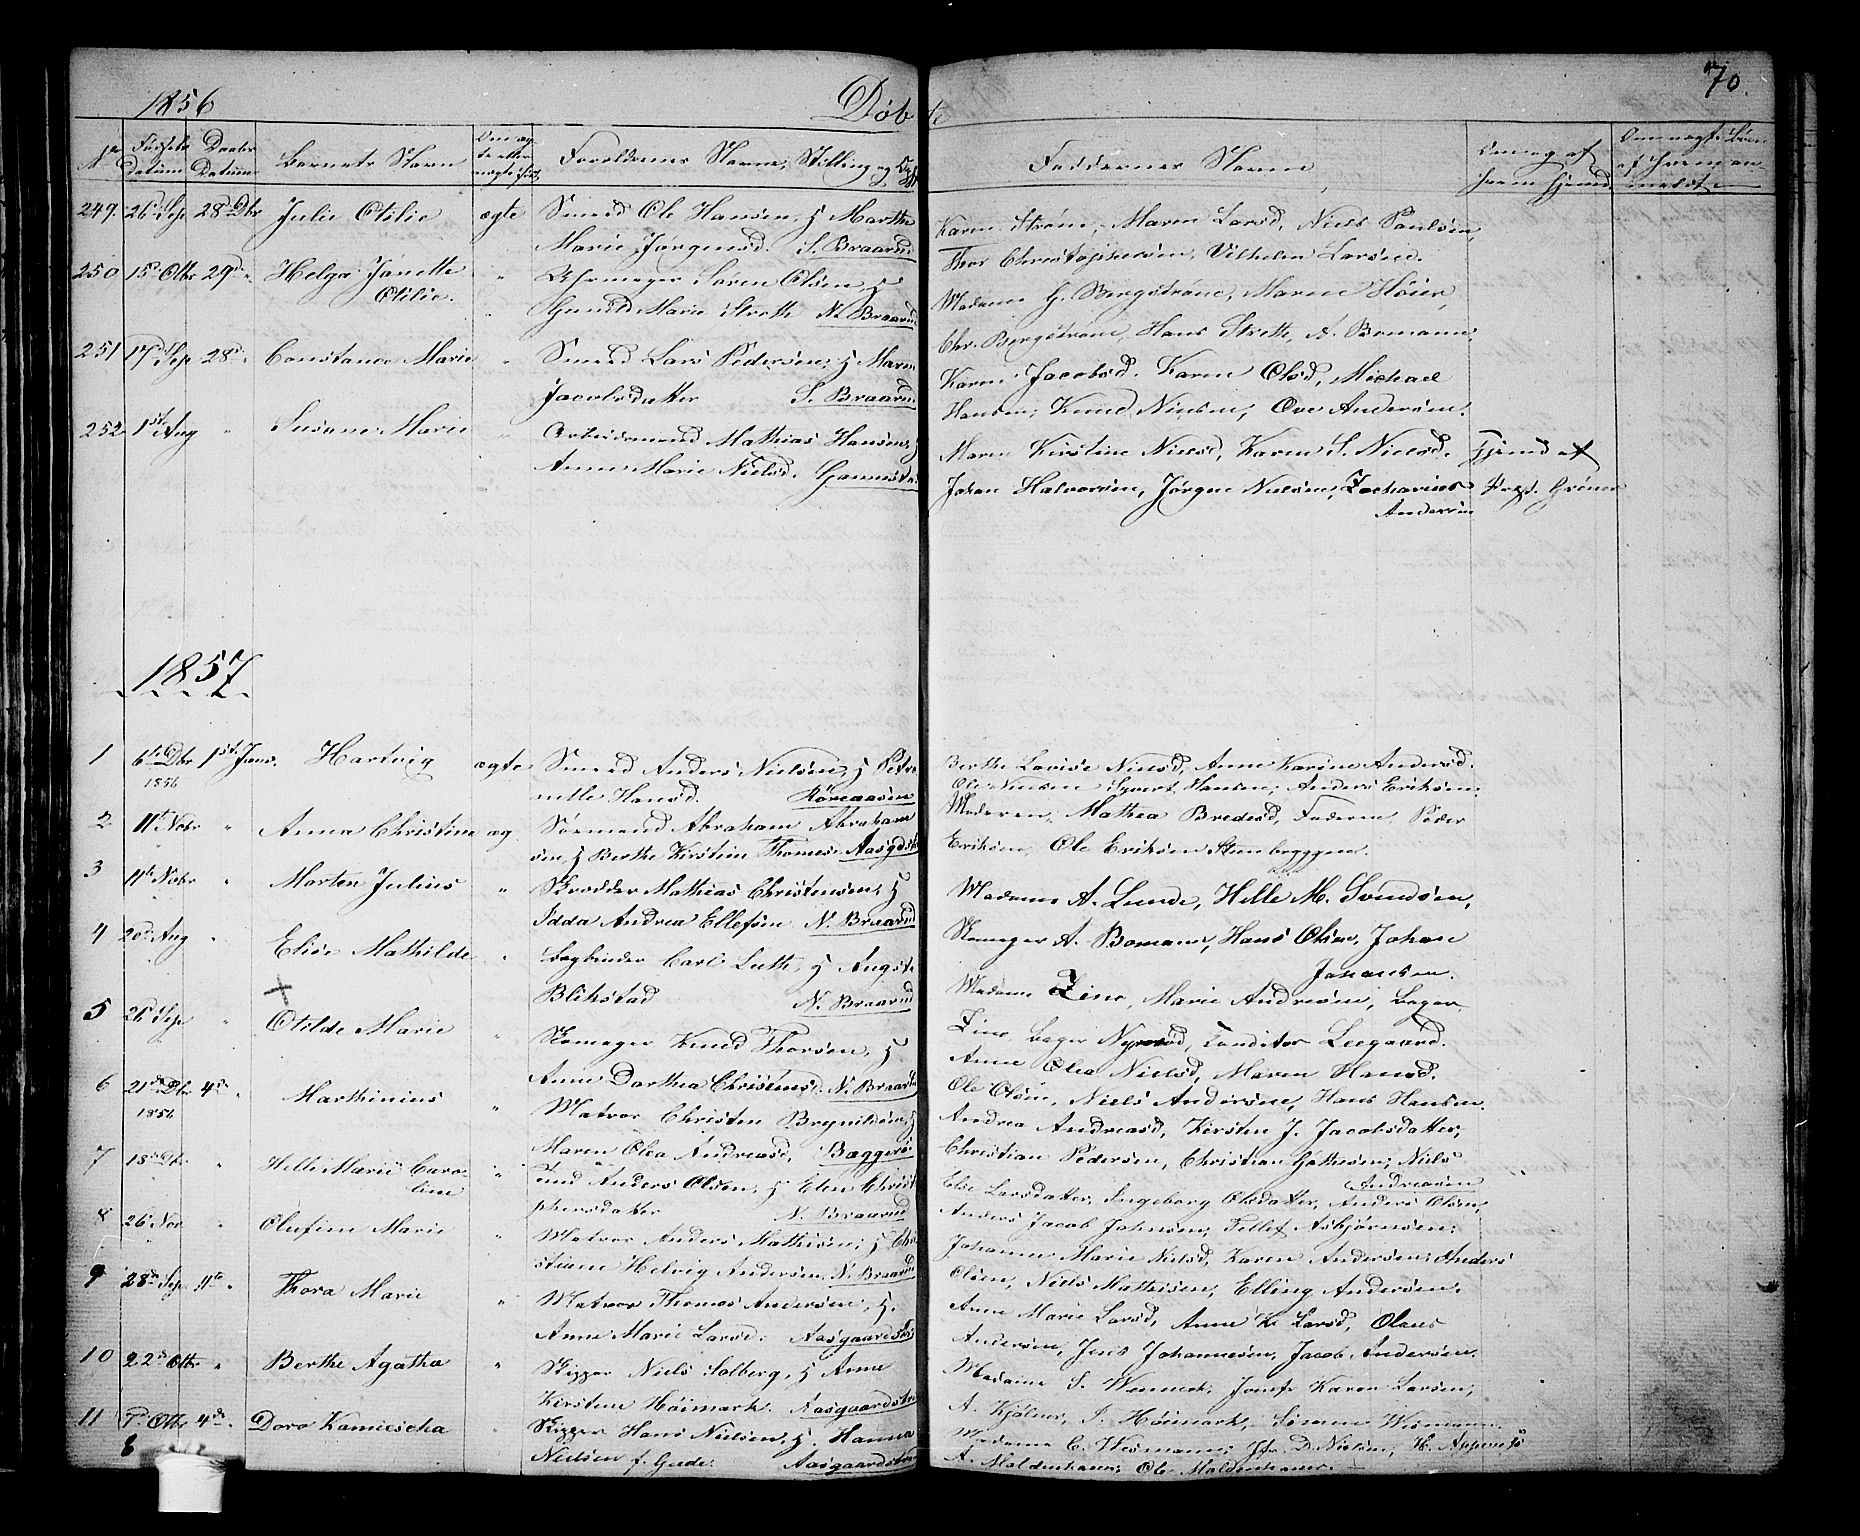 1856
Døbte
70.
No
Fødsels Datum
Daabs Datum
Barnets Navn
Om ægte eller uægte født
Forældrenes Navne, Stilling og
Faddernes Navne
Om og af hvem hjemd.
Om uægte Børn af hvem anmeldt
249. 26d Sep 28d Dbr Julie Otilie ægte Smed Ole Hansen, & Marthe
Marie Jørgensd. S. Braarud
Karen Strøm, Maren Larsd, Niels Paulsen,
Thor Christophersen, Vilhelm Larsen.
250 15d Otbr 29d " Helga Janette " Uhrmager Søren Olsen &
Otilie.
Gunild Marie Stroth N. Braarud
Madame G. Bergstrøm, Maren Höier,
Chr. Bergstrøm, Hans Stroth, A. Bomann;
251 17d Sep 28d " Constance Marie " Smed Lars Pedersen, & Maren
Jacobsdatter S. Braarud
Karen Jacobsd. Karen Olsd, Michael
Hansen, Knud Nielsen, Ove Andersen.
252 1st Aug " Susane Marie " Arbeidsmand Mathias Hansen, &
Anne Marie Nielsd.
Maren Kirstine Nielsd, Karen S. Nielsd. Hjemd af
Johan Halvorsen, Jørgen Nielsen, Zacharias Præst. Grüner
Andersen
1857
1 6te Dbr 1st Janr. Hartvig ægte Smed Anders Nielsen, & Petro
1856
nelle Hansd.
Berthe Lovise Nielsd, Anne Karine Andersd.
Ole Nielsen Syvert Hansen, Anders Eriksen.
2 11te Nobr " Anna Christine æg. Sømand Abraham Abraham
sen, & Berthe Kirstine Thomesd Aasgdst
Moderen, Mathea Bredesd, Faderen Peder
Eriksen, Ole Eriksen Steenbryggen.
3 11te Nobr " Morten Julius " Skrædder Mathias Christensen, &
Idda Andrea Ellefsen N. Braarud
Madame A. Lunde, Helle M. Svendsen,
Skomager A. Bomann, Hans Olsen, Johan
Johansen.
4 20d Aug " Elise Mathilde " Bogbinder Carl Luth, & Augste
Blikstad N. Braarud
Madame Zine, Marie Andresen, Bager
Zine, Bager Conditor Leegaard.
5 26d Sep " Otilde Marie " Skomager Knud Thorsen, &
Anne Dorthea Christensd. N. Braarud
Anne Olea Nielsd, Maren Hansd.
Ole Olsen, Niels Andersen, Hans Hansen.
6 21de Dbr 4de " Marthinius " Matros Christen Brynildsen, &
1856
Maren Olea Andreasd,
Andrea Andreasd, Kirsten J. Jacobsdatter,
Christian Pedersen, Christian Gathesen, Niels
Andreasen
7 18de Dbr " Helle Marie Caro " Smd Anders Olsen, & Elen Christ
line
phersdatter N. Braarud
Else Larsdatter, Ingeborg Olsdatter, Anders Olsen,
Anders Jacob Johnsen, Tellef Asbjørnsen;
8 26 Nov " Olufine Marie " Matros Anders Mathisen, & Chri
stiane Helvig Andersen N. Braarud
Johanne Marie Nielsd, Karen Andersen, Anders
Olsen, Niels Mathisen, Elling Andersen.
9 28de Sep 11te " Thora Marie " Matros Thomas Andersen, &
Anne Marie Larsd. Aasgaardstr
Anne Marie Larsd, Anne K. Larsd, Olaus
Andersen, Jens Johannesen, Jacob Andersen.
10 22d Otbr " Berthe Agatha " Skipper Niels Solberg, & Anne
Kirstine Høimark. Aasgaardstr
Madame S. Wennerk, Jomfr Karen Larsen,
A. Kjølner, I. Høimark, Simen Wismann.
11 7d Otbr 4de " Dora Kamiescha " Skipper Hans Nielsen, & Hanna
8
Nielsen f. Giede. Aasgaardstr
Madame C. Wismann, Jfr D. Nielsen, H. Appenæs
A. Moldenhauer, Ole Moldenhauer.